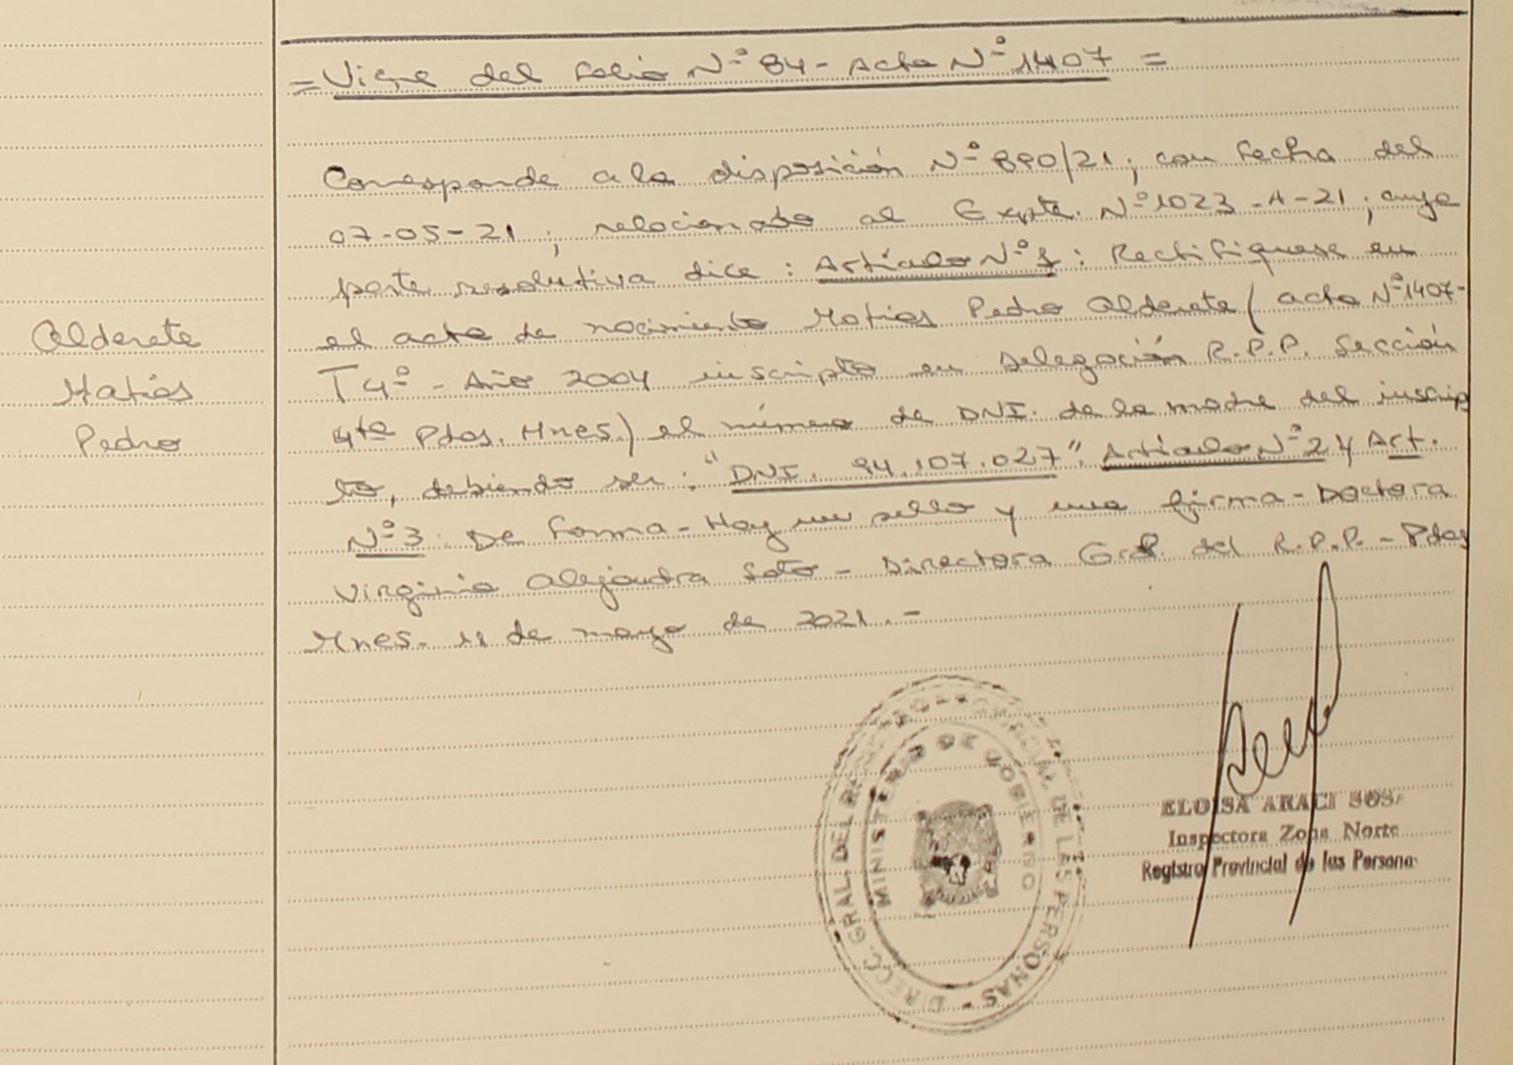 = Viene del Folio Nº 84 - Acta Nº 1407 =
Corresponde a la disposición Nº 890/21, con fecha del
07-05-21, relacionado al Expte. Nº 1023-A-21, cuya
parte resolutiva dice: Artículo Nº 1: Rectifiquese en
el acta de nacimiento Matías Pedro Alderete (acta Nº 1407-
T 4º - Año 2004 inscripto en Delegación R.P.P. Sección
4ta Pdas. Mnes) el número de DNI. de la madre del inscrip
to, debiendo ser: "DNI. 94.107.027". Artículo Nº 2 y Art.
Nº 3: De Forma - Hay un sello y una firma - Doctora
Virginia Alejandra Soto - Directora Gral. del R.P.P. - Pdas
Mnes. 11 de mayo de 2021.-
Alderete
Matías
Pedro
DIRECC. GRAL. DEL REG. PROVINCIAL DE LAS PERSONAS
MINISTERIO DE GOBIERNO
ELOISA ARACI SOSA
Inspectora Zona Norte
Registro Provincial de las Personas